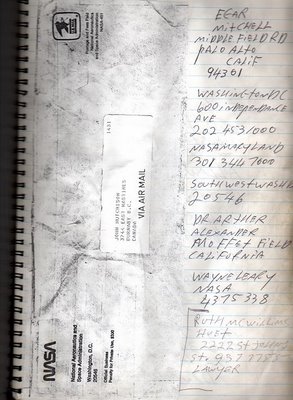 Postage and Fees Paid
National Aeronautics
and Space Administration
NASA-451
VIA AIR MAIL
1431
JOHN HUTCHISON
EAST HASTINGS
BURNABY B.C.
CANADA
NASA
National Aeronautics and
Space Administration
Washington, D.C.
20546
Official Business
Penalty for Private Use, $300
EGAR
MITCHELL
MIDDLEFIELD RD
PALO ALTO
CALIF
94301
WASHINGTON DC
600 INDEPENDANCE
AVE
202 453 1000
NASA MARYLAND
301 344 7000
SOUTH WEST WASH
20546
DR ARTHER
ALEXANDER
MOFFET FIELD
CALIFORNIA
WAYNE LEARY
NASA
4375338
RUTH MCWILLIMS
HUST
2222 ST
STE 937 7755
LAWYER